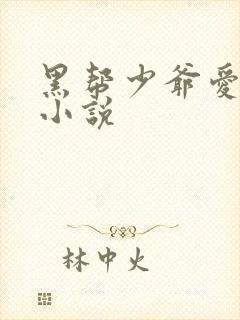 黑帮少爷爱
小說
林中火